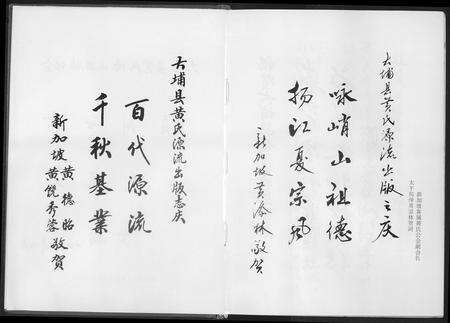 大埔县黄氏源流出版之庆
咏峭山祖德
扬江夏宗风
新加坡黄添林敬贺
大埔县黄氏源流出版志庆
百代源流
千秋基業
新加坡 黄德昭
黄饶秀蓉 敬贺